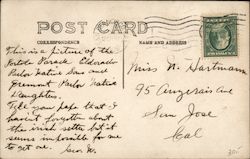 POST CARD
CORRESPONDENCE
NAME AND ADDRESS
This is a picture of the
Portola Parade Eldorado
Parlor Native Sons and
Fremont Parlor Native
Daughters.
Tell your papa that I
haven't forgotten about
the irish setter but it
seems impossible for me
to get one.
Geo. W.
Miss N. Hartmann
95 Auzerais Ave
San Jose
Cal